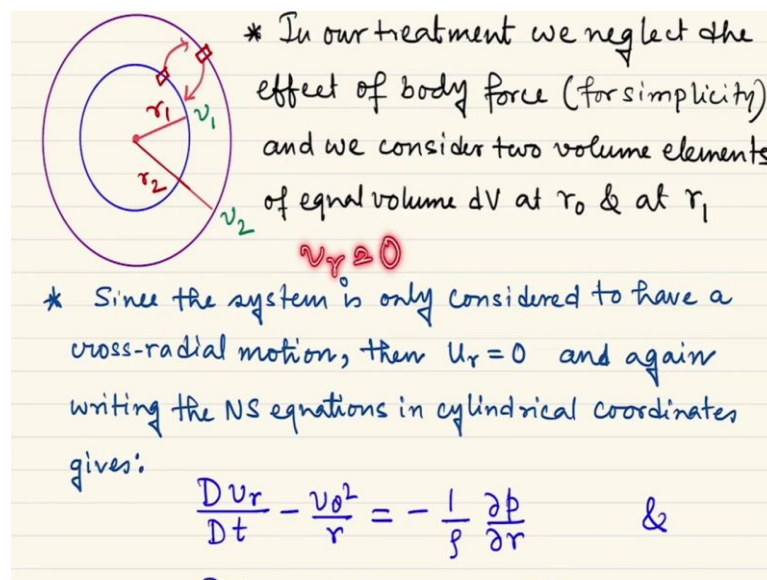 * In our treatment we neglect the
effect of body force (for simplicity)
and we consider two volume elements
of equal volume dV at r₀ & at r₁
r₁ v₁
r₂
v₂
vᵣ = 0
* Since the system is only considered to have a
cross-radial motion, then Uᵣ = 0 and again
writing the NS equations in cylindrical coordinates
gives:
Dvᵣ/Dt - vθ²/r = - 1/ρ ∂p/∂r &